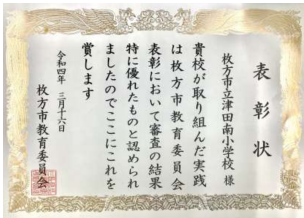 表彰状
枚方市立津田南小学校 様
貴校が取り組んだ実践
は枚方市教育委員会
表彰において審査の結果
特に優れたものと認められ
ましたのでここにこれを
賞します
令和四年 三月十六日
枚方市教育委員会